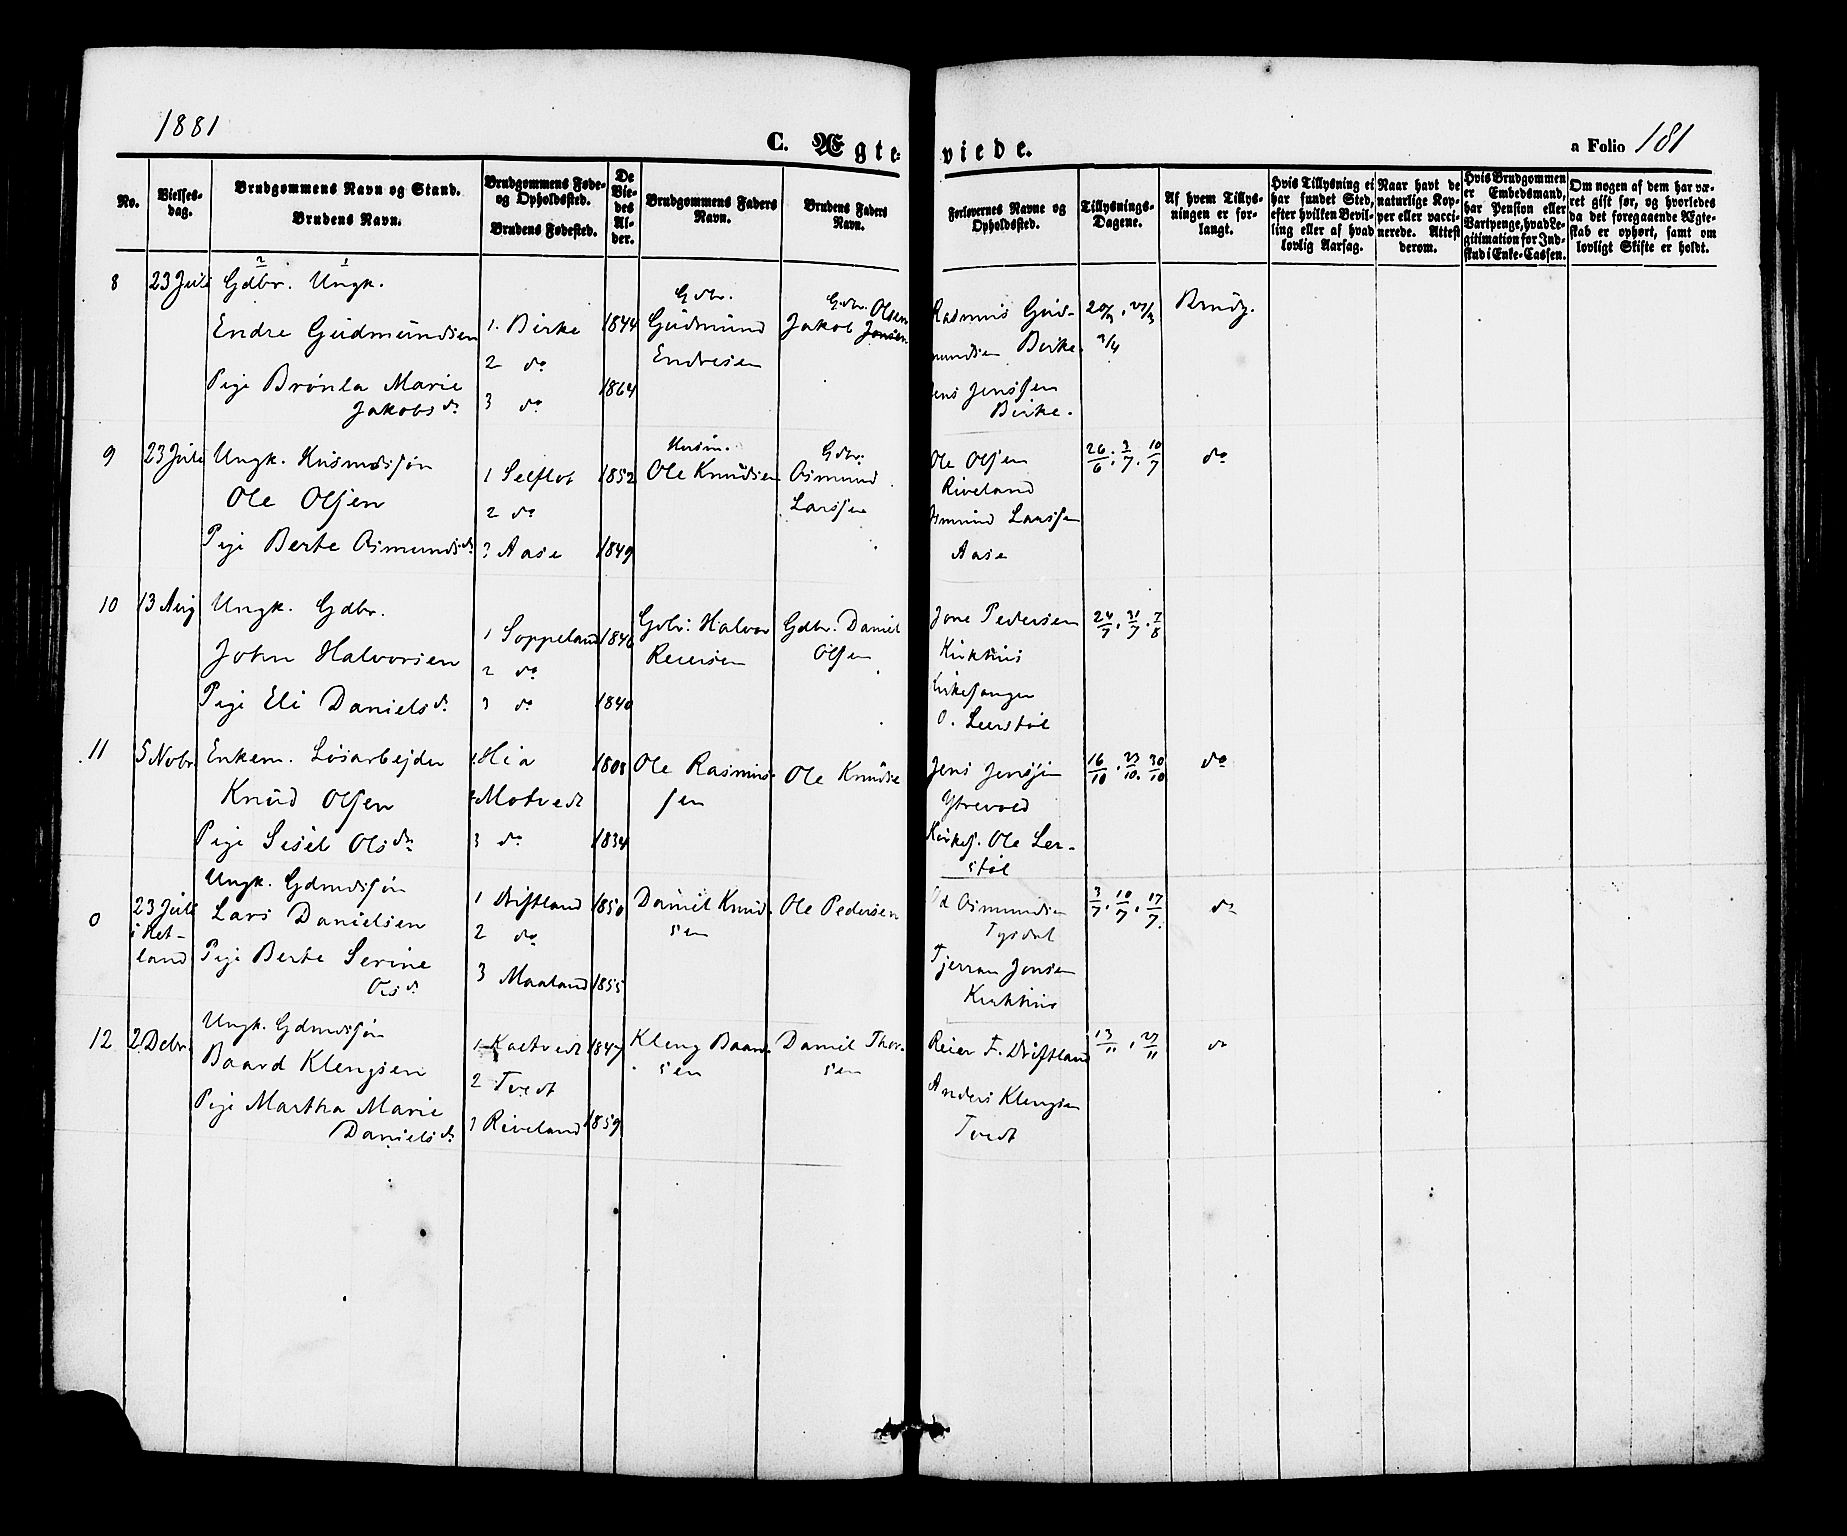 1881
C. Ægte-
viede.
a Folio 181
No.
Vielses-
dag.
Brudgommens Navn og Stand.
Brudens Navn.
Brudgommens Føde-
og Opholdssted.
Brudens Fødested.
De
Vie-
des
Al-
der.
Brudgommens Faders
Navn.
Brudens Faders
Navn.
Forlovernes Navne og
Opholdssted.
Tillysnings-
Dagene.
Af hvem Tillys-
ningen er for-
langt.
Hvis Tillysning ei
har fundet Sted,
efter hvilken Bevil-
ling eller af hvad
lovlig Aarsag.
Naar havt de
naturlige Kop-
per eller vacci-
nerede. Attest
derom.
Hvis Brudgommen
er Embedsmand,
har Pension eller
Vartpenge, hvad Le-
gitimation for Ind-
skud i Enke-Cassen.
Om nogen af dem har væ-
ret gift før, og hvorledes
da det foregaaende Ægte-
skab er ophørt, samt om
lovligt Skifte er holdt.
8
23 Juli
2 1
Gdbr. Ungk.
Endre Gudmundsen
Pige Brønla Marie
Jakobsdr.
1. Birke
2 do
3 do
1844
1864
Gdbr.
Gudmund
Endresen
Gdbr. Olsen
Jakob Jonsen
Rasmus Gud-
mundsen Birke.
Jens Jenssen
Birke.
20/3, 27/3
3/4
Brudg.
9
23 Juli
Ungk. Husmdssøn
Ole Olsen
Pige Berte Osmundsdr.
1 Selflot
2 do
3 Aase
1852
1849
Husm.
Ole Knudsen
Gdbr.
Osmund
Larssen
Ole Olsen
Riveland
Osmund Larssen
Aase
26/6. 3/7. 10/7
do
10
13 Aug
Ungk. Gdbr.
John Halvorsen
Pige Eli Danielsdr.
1 Soppeland
2 do
3 do
1846
1840
Gdbr. Halvor
Reiersen
Gdbr. Daniel
Olsen
Jone Pedersen
Kirkhus
Kirkesanger
O. Leerstøl
24/7. 31/7. 7/8
11
5 Novbr.
Enkem. Løsarbejder
Knud Olsen
Pige Sisil Olsdr.
1. Hia
2 Motvedt
3 do
1808
1834
Ole Rasmus-
sen
Ole Knudse
Jens Jenssen
Ytrevold
Kirkes. Ole Ler-
støl
16/10. 23/10. 30/10
do
0
23 Juli
i Het-
land
Ungk. Gdmdssøn
Lars Danielsen
Pige Berte Serine
Olsdr.
1 Driftland
2 do
3 Maaland
1850
1855
Daniel Knud-
sen
Ole Pedersen
Osmundsen
Tysdal
Tjerran Jonsen
Kirkhus
3/7. 10/7. 17/7.
do
12
2 Debr.
Ungk. Gdmdssøn
Baard Klengsen
Pige Martha Marie
Danielsdr.
1
2 Tvedt
3 Riveland
1847
1859
Kleng Baard-
sen
Daniel Thor-
sen
Reier T. Driftland
Anders Klengsen
Tvedt
13/11, 27/11
do